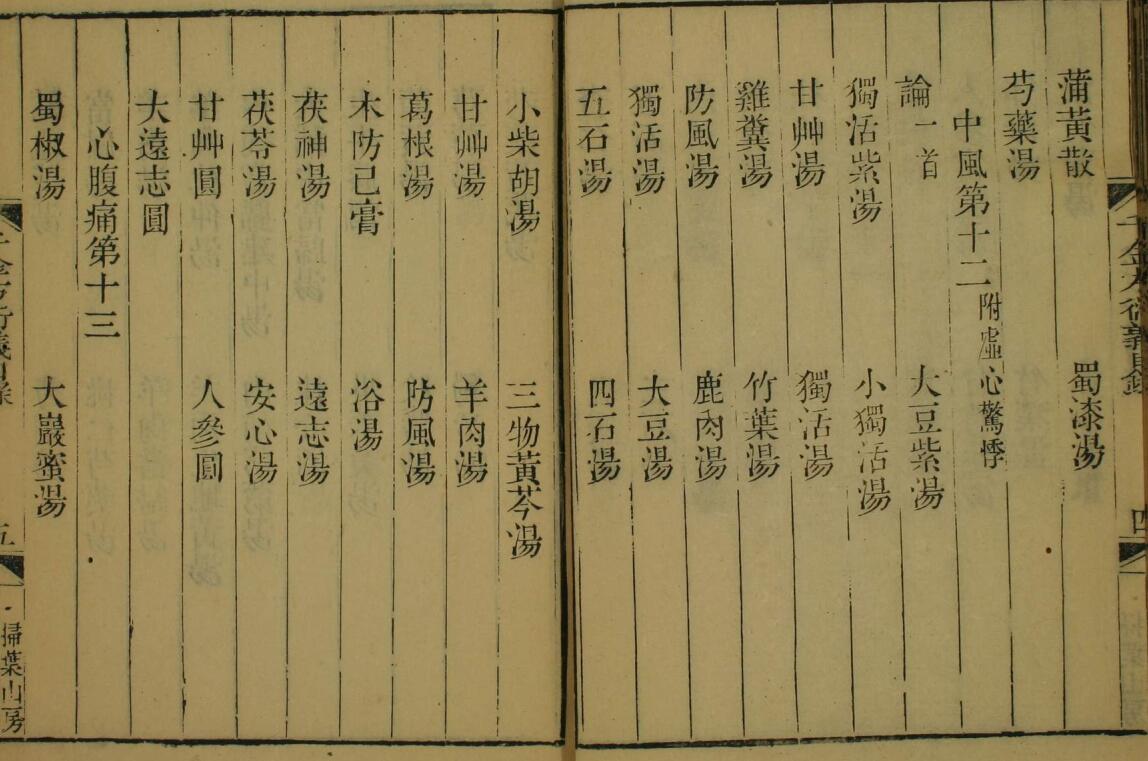 蒲黃散 蜀漆湯
芍藥湯
中風第十二附虛心驚悸
論一首 大豆紫湯
獨活紫湯 小獨活湯
甘艸湯 獨活湯
雞糞湯 竹葉湯
防風湯 鹿肉湯
獨活湯 大豆湯
五石湯 四石湯
小柴胡湯 三物黃芩湯
甘艸湯 羊肉湯
葛根湯 防風湯
木防己膏 浴湯
茯神湯 遠志湯
茯苓湯 安心湯
甘艸圓 人參圓
大遠志圓
心腹痛第十三
蜀椒湯 大巖蜜湯
千金方衍義目錄 四
千金方衍義目錄 五
掃葉山房